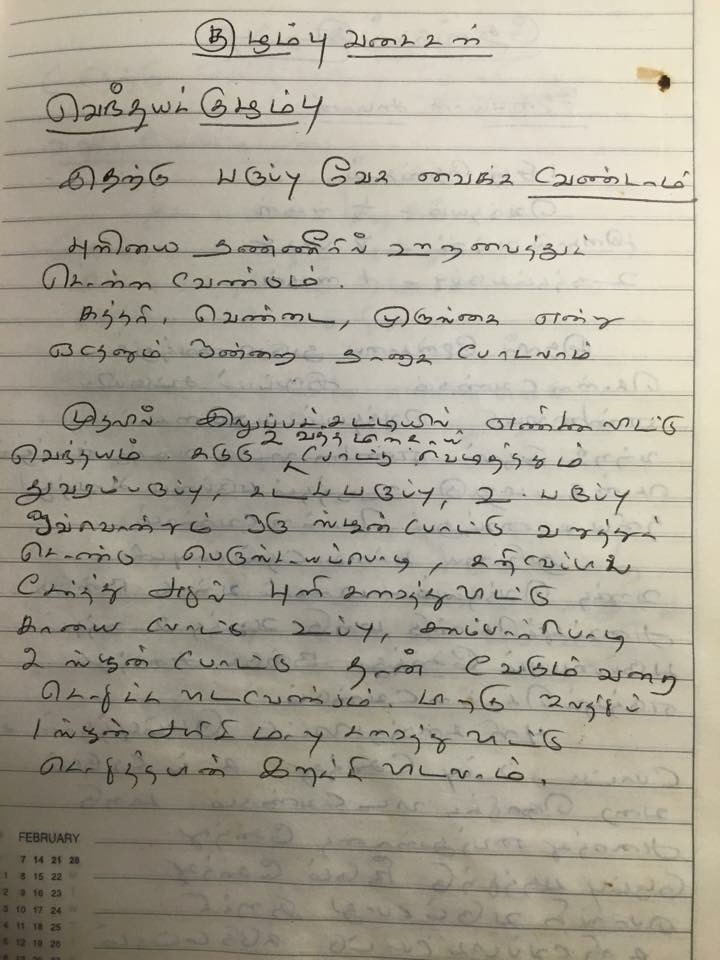 குழம்பு வகைகள்
வெந்தயக் குழம்பு
இதற்கு பருப்பு வேக வைக்க வேண்டாம்
புளியை தண்ணீரில் ஊற வைத்துக்
கொள்ள வேண்டும்.
கத்தரி, வெண்டை, முருங்கை என்று
ஏதேனும் ஒன்றை தானாக போடலாம்
முதலில் இலுப்பச்சட்டியில் எண்ணை விட்டு
2 வத்தமிளகாய்
வெந்தயம் கடுகு போட்டு வெடித்ததும்
துவரப்பருப்பு, கடலைபருப்பு, உ. பருப்பு
ஒவ்வொன்றும் ஒரு ஸ்பூன் போட்டு வறுத்துக்
கொண்டு பெருங்காயப்பொடி, கறிவேப்பிலை
சேர்த்து அதில் புளி கரைத்து விட்டு
காயை போட்டு உப்பு, சாம்பார்பொடி
2 ஸ்பூன் போட்டு தான் வேகும் வரை
கொதிக்க விடவேண்டும். பிறகு
1 ஸ்பூன் அரிசி மாவு கரைத்து விட்டு
கொதித்தபின் இறக்கி விடலாம்.
FEBRUARY
7 14 21 28
1 8 15 22
2 9 16 23
3 10 17 24
4 11 18 25
5 12 19 26